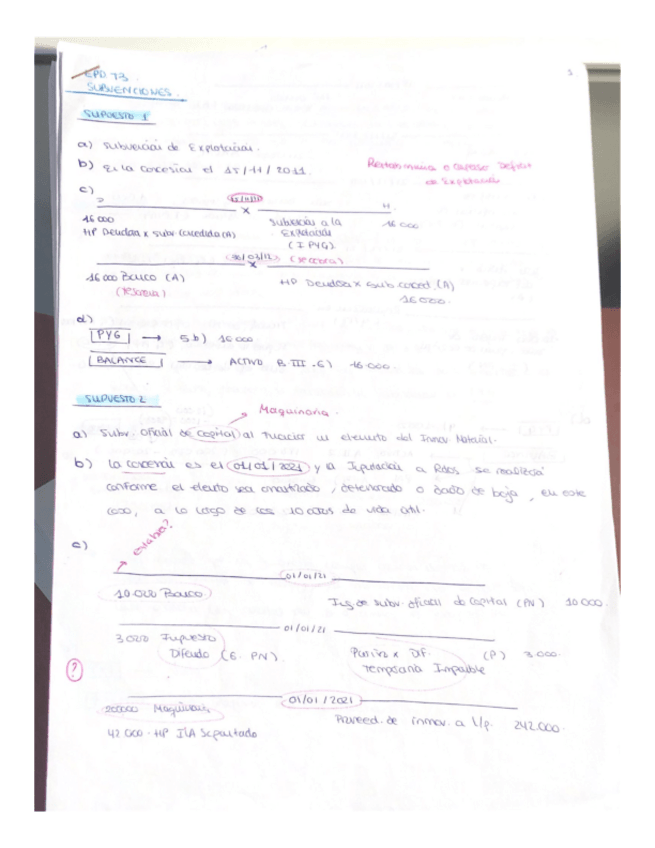 EPD 73.
SUBVENCIONES.
1.
SUPUESTO 1
a) Subvención de Explotación.
b) Es la concesión el 15/11/2011.
Rentab. mínima o compensar Déficit
de Explotación
c)
D H
16 000 Subvención a la 16 000
HP Deudora x Subv Concedida (A) Explotación
(I PYG)
x (tesorería)
16 000 Banco (A) HP Deudora x Sub conced. (A)
(Tesorería) 16 000.
d)
PYG → 5.b) 16 000
BALANCE → ACTIVO B.III.6) 16.000
SUPUESTO 2
Maquinaria.
a) Subv. Oficial de capital al financiar un elemento del Inmov. Material.
b) La concesión es el 01/01/2021 y la Imputación a Rdos se realizará
conforme el elemento sea amortizado, deteriorado o dado de baja, en este
caso, a lo largo de los 10 años de vida útil.
c)
01/01/21
10.000 Banco. Ing de subv. oficial de capital (PN) 10 000.
01/01/21
3 000 Impuesto Pasivo x Dif. (P) 3.000.
Diferido (G. PN) Temporaria Imponible
?
01/01/2021
200000 Maquinaria Proveed. de inmov. a l/p. 242.000.
42 000 HP IVA Soportado